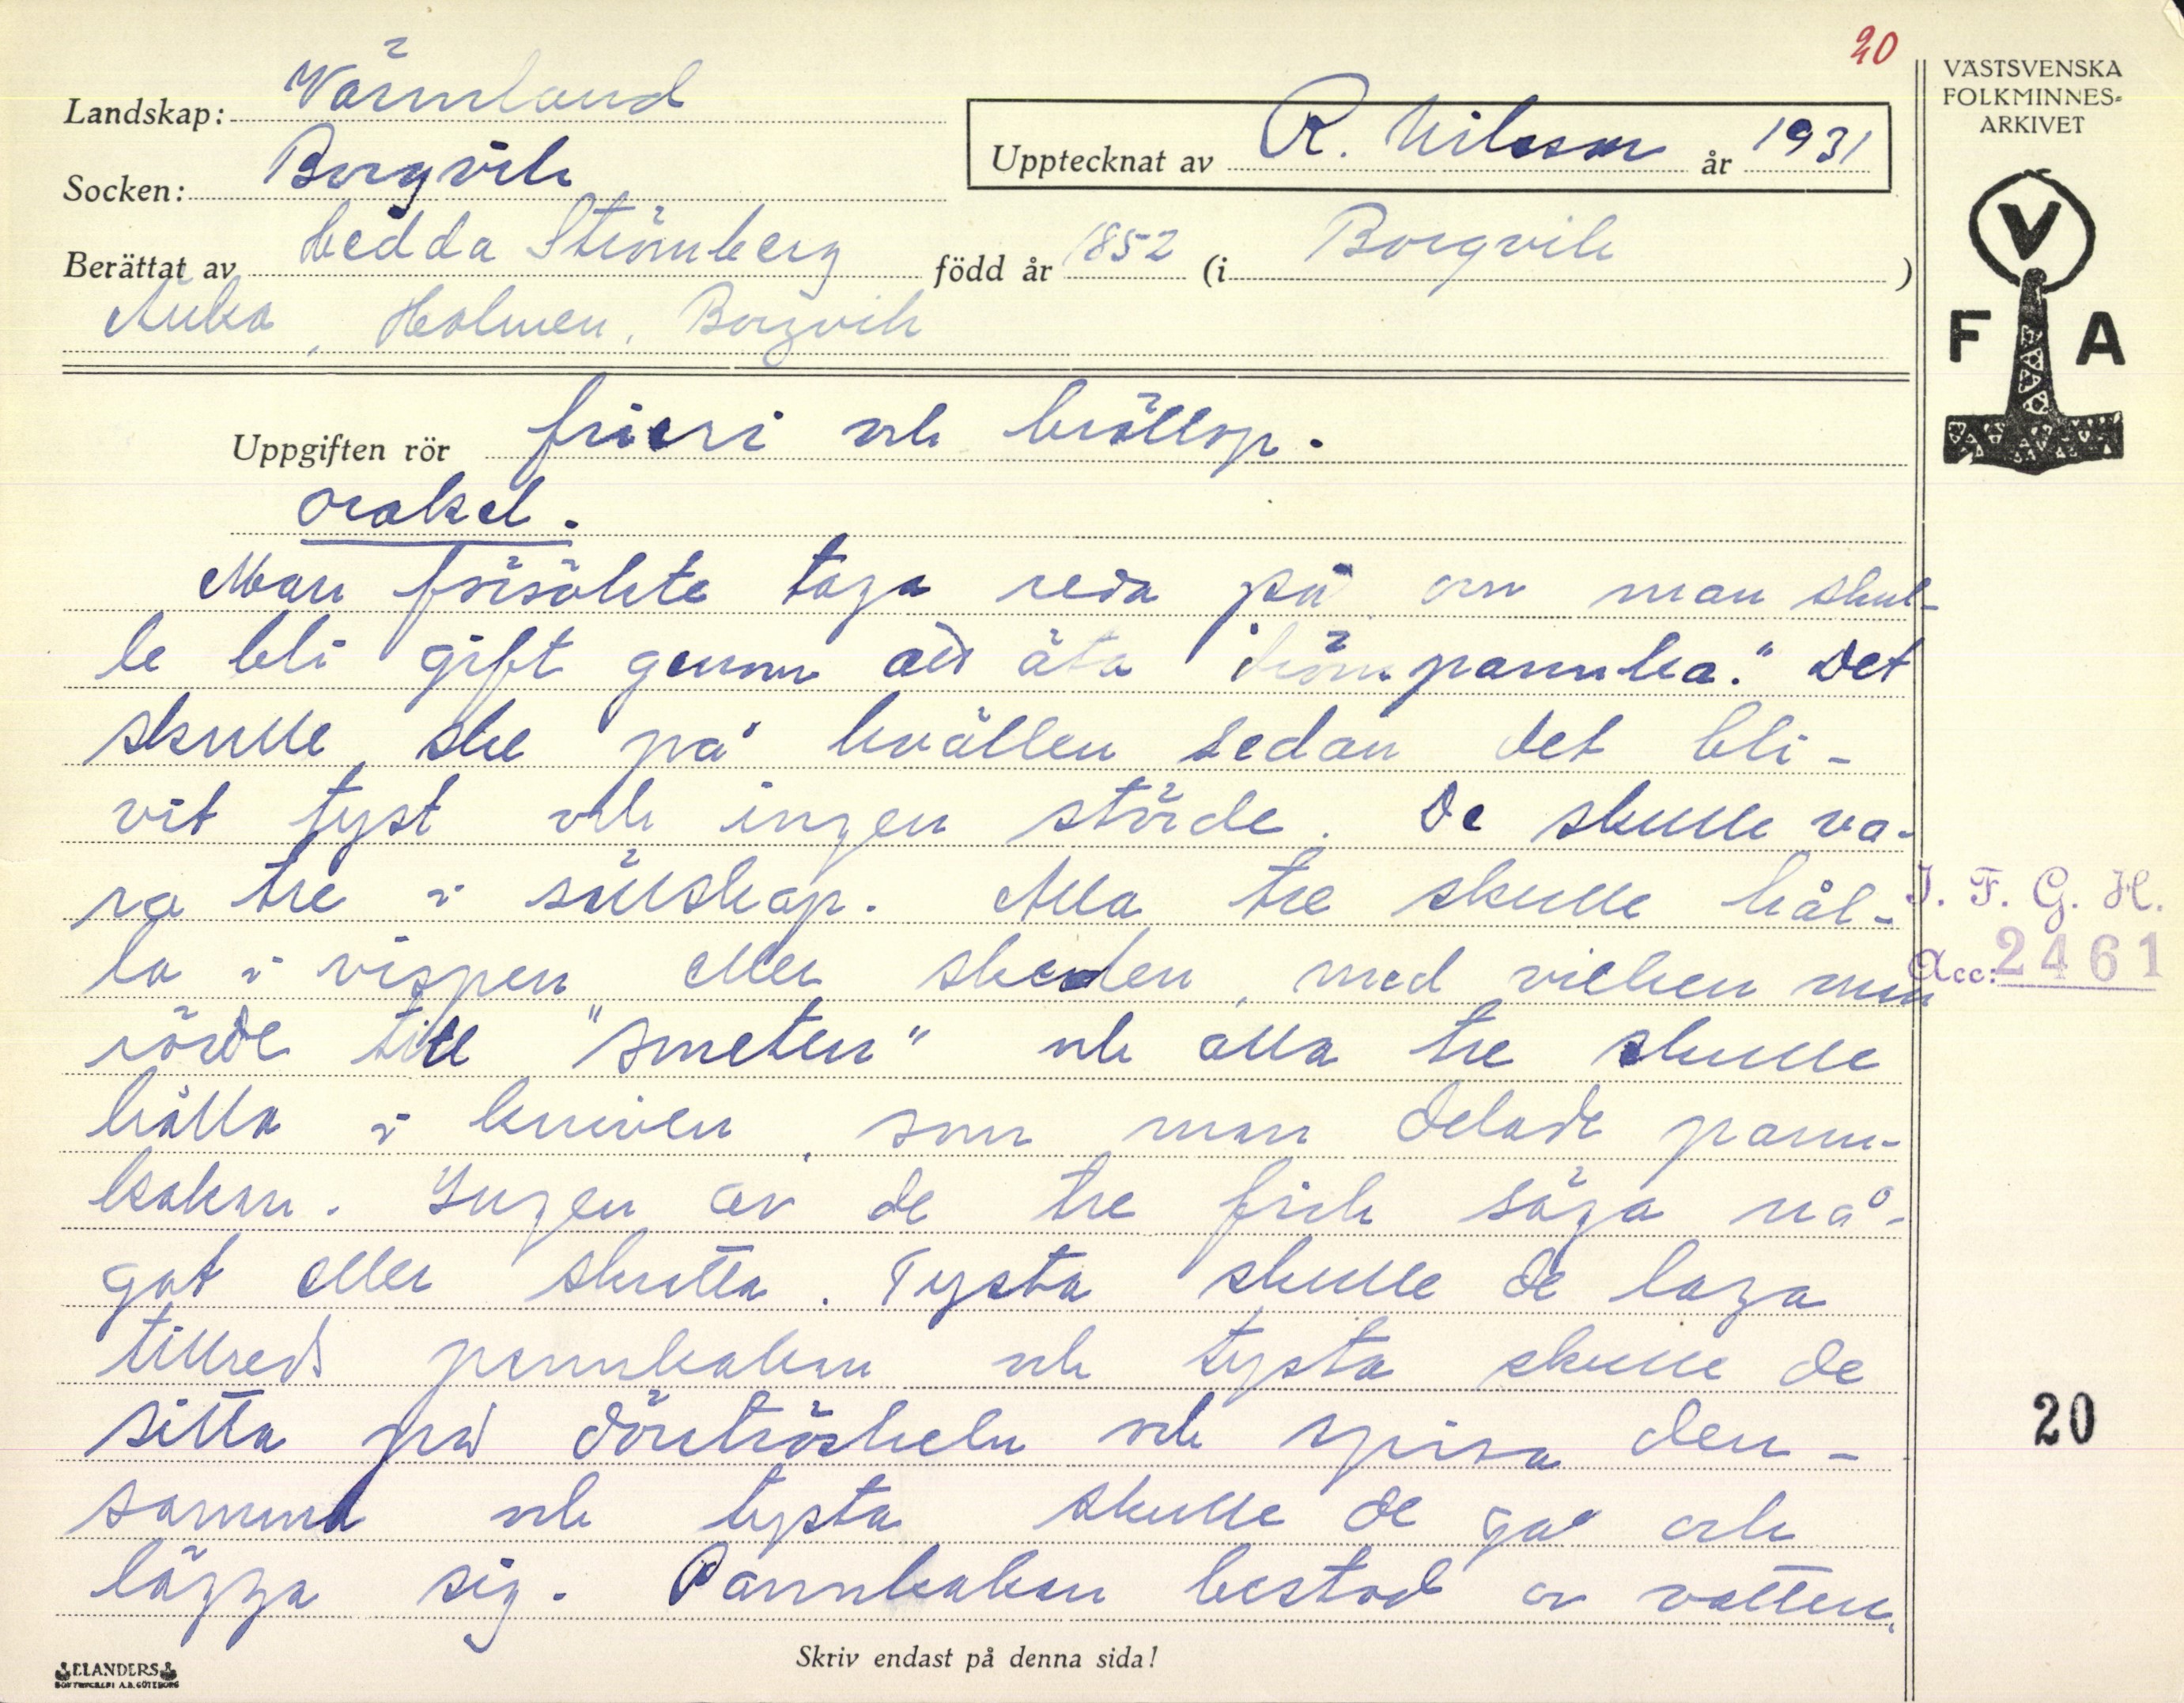 20
Landskap: Värmland
Socken: Borgvik
Upptecknat av R. Nilsson år 1931
Berättat av Hedda Strömberg född år 1852 (i Borgvik)
Änka, Holmen, Borgvik
VÄSTSVENSKA
FOLKMINNES-
ARKIVET
V
F A
Uppgiften rör frieri och bröllop.
orakel.
Man försökte taga reda på om man skul-
le bli gift genom att äta "drömpannka." Det
skulle ske på kvällen sedan det bli-
vit tyst och ingen störde. De skulle va-
ra tre i sällskap. Alla tre skulle hål-
la i vispen eller skeden, med vilken man
rörde till "smeten" och alla tre skulle
hålla i kniven, som man delade pann-
kakan. Ingen av de tre fick säga nå-
got eller skratta. Tysta skulle de laga
tillreds pannkakan och tysta skulle de
sitta på dörrtröskeln och spisa den-
samma och tysta skulle de gå och
lägga sig. Pannkakan bestod av vatten,
I. F. G. H.
Acc: 2461
20
Skriv endast på denna sida!
ELANDERS
BOKTRYCKERI A.B. GÖTEBORG